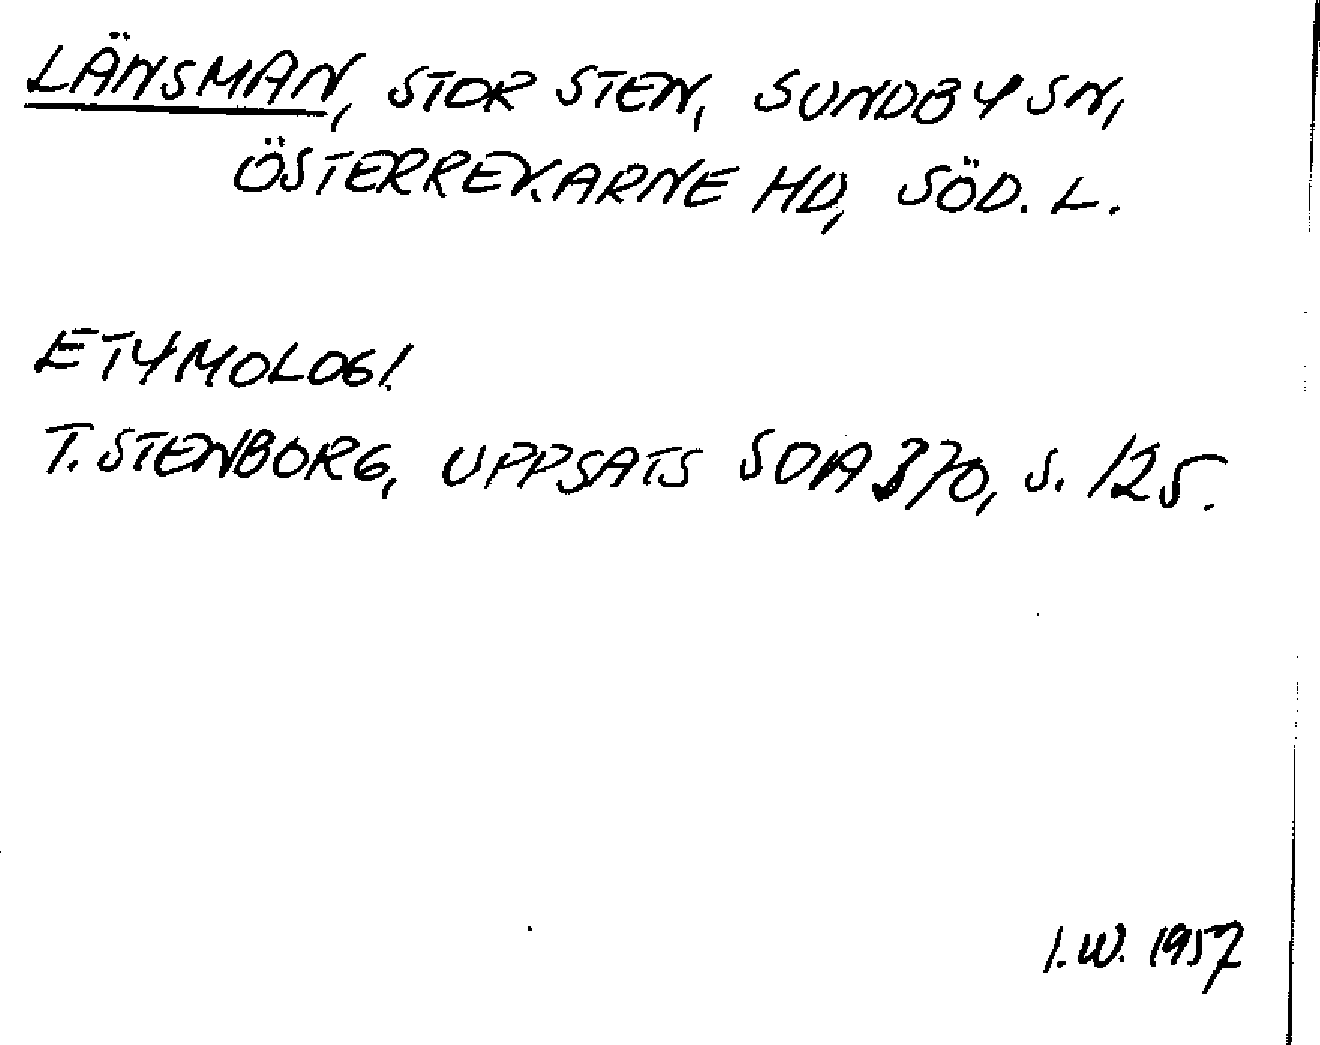 LÄNSMAN, STOR STEN, SUNDBY SN,
ÖSTERREKARNE HD, SÖD. L.
ETYMOLOGI.
T. STENBORG, UPPSATS SOA 370, S. 125.
I. W. 1957